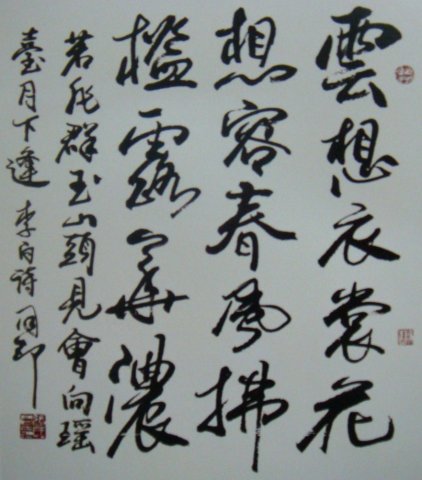 雲想衣裳花
想容春風拂
檻露華濃
若非群玉山頭見會向瑤
臺月下逢 李白詩